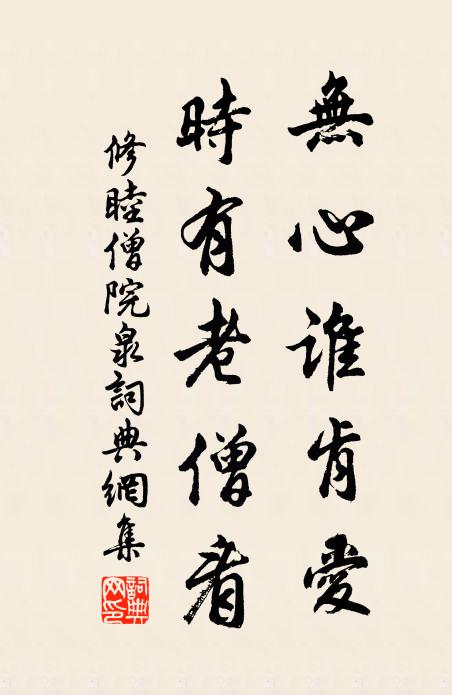 無心誰肯愛
時有老僧看
修睦僧院泉詞典網集
詞典網印